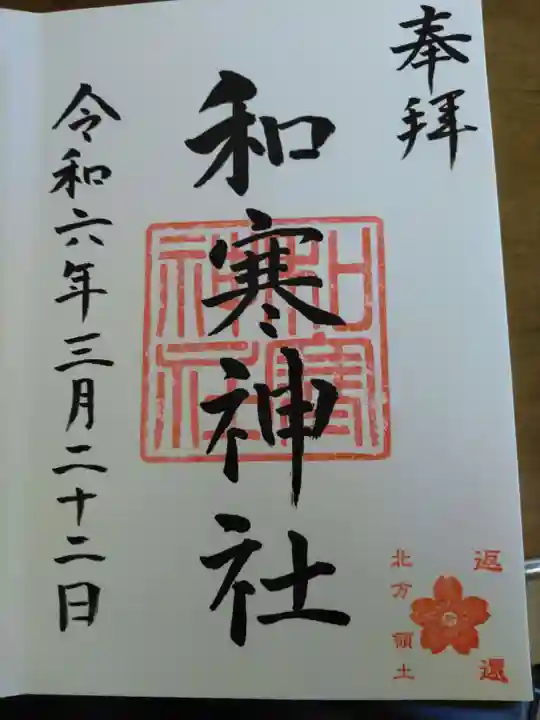 奉拝
和寒神社
和寒神社
令和六年三月二十二日
返還
北方領土